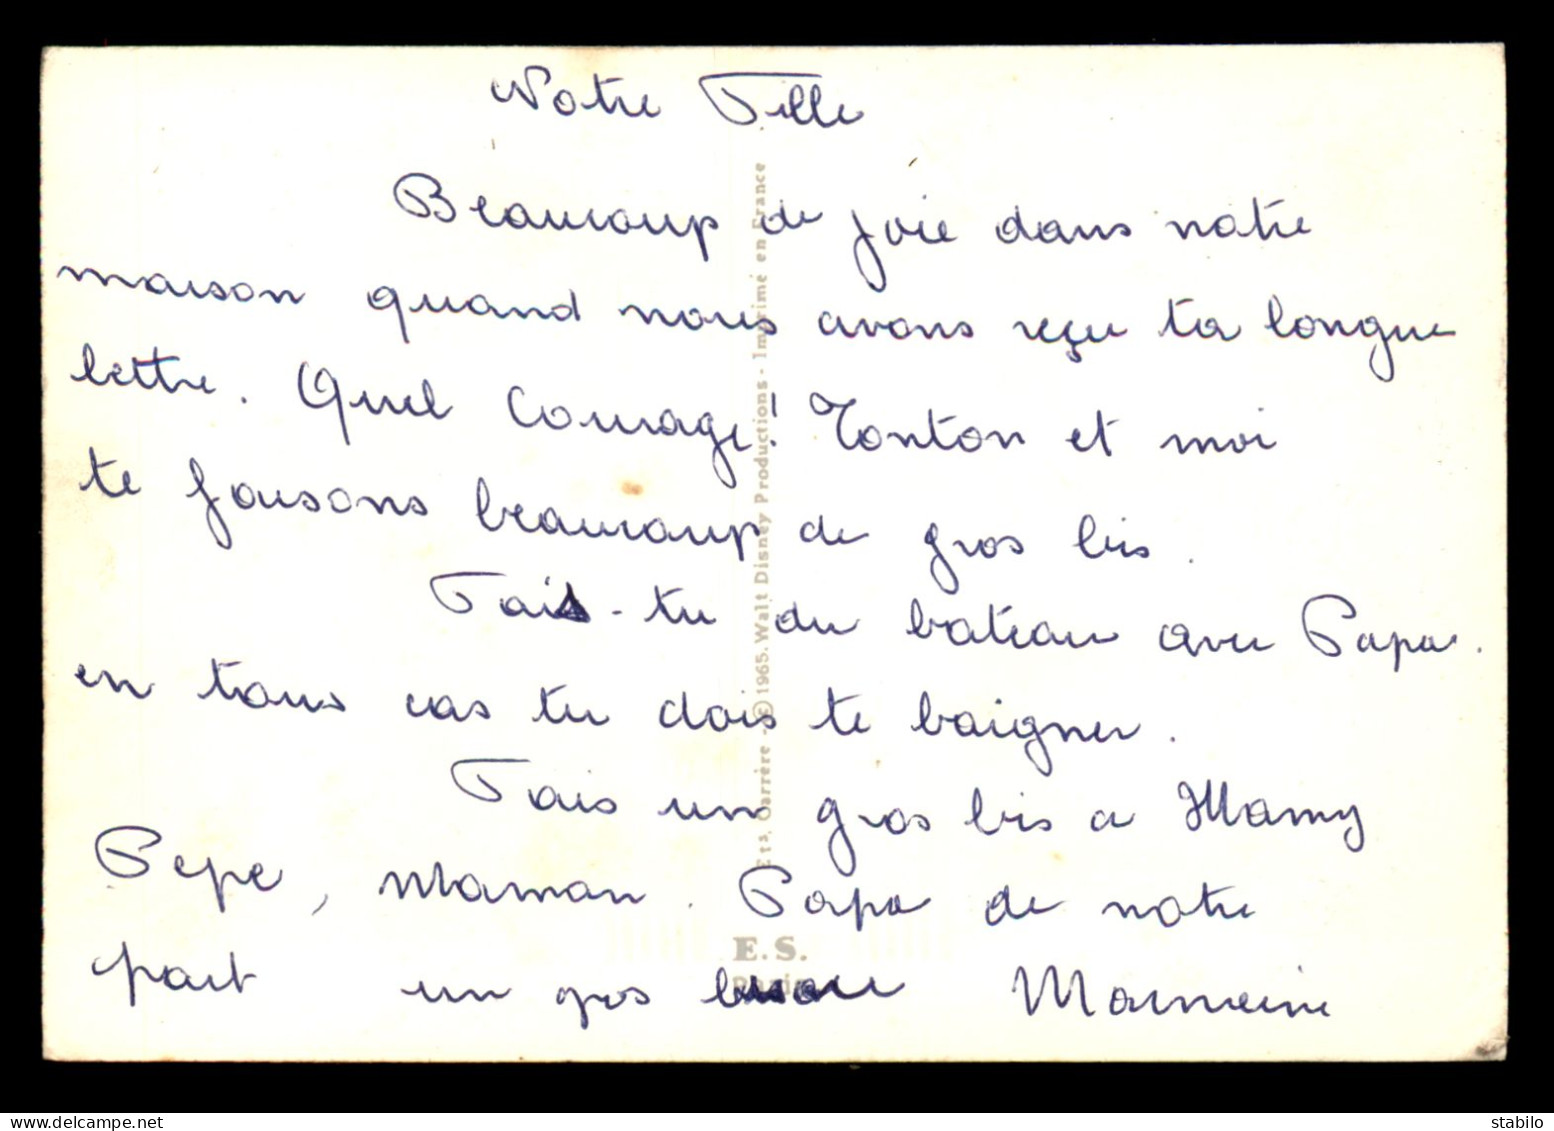 Notre Fille
Beaucoup de joie dans notre
maison quand nous avons reçu ta longue
lettre. Quel Courage! Tonton et moi
te faisons beaucoup de gros bis.
Fais-tu du bateau avec Papa.
en tous cas tu dois te baigner.
Fais un gros bis a Mamy
Pepe, Maman. Papa de notre
part un gros
Ets. Carrère - © 1965. Walt Disney Productions - Imprimé en France
E.S.
Paris
www.delcampe.net
stabilo